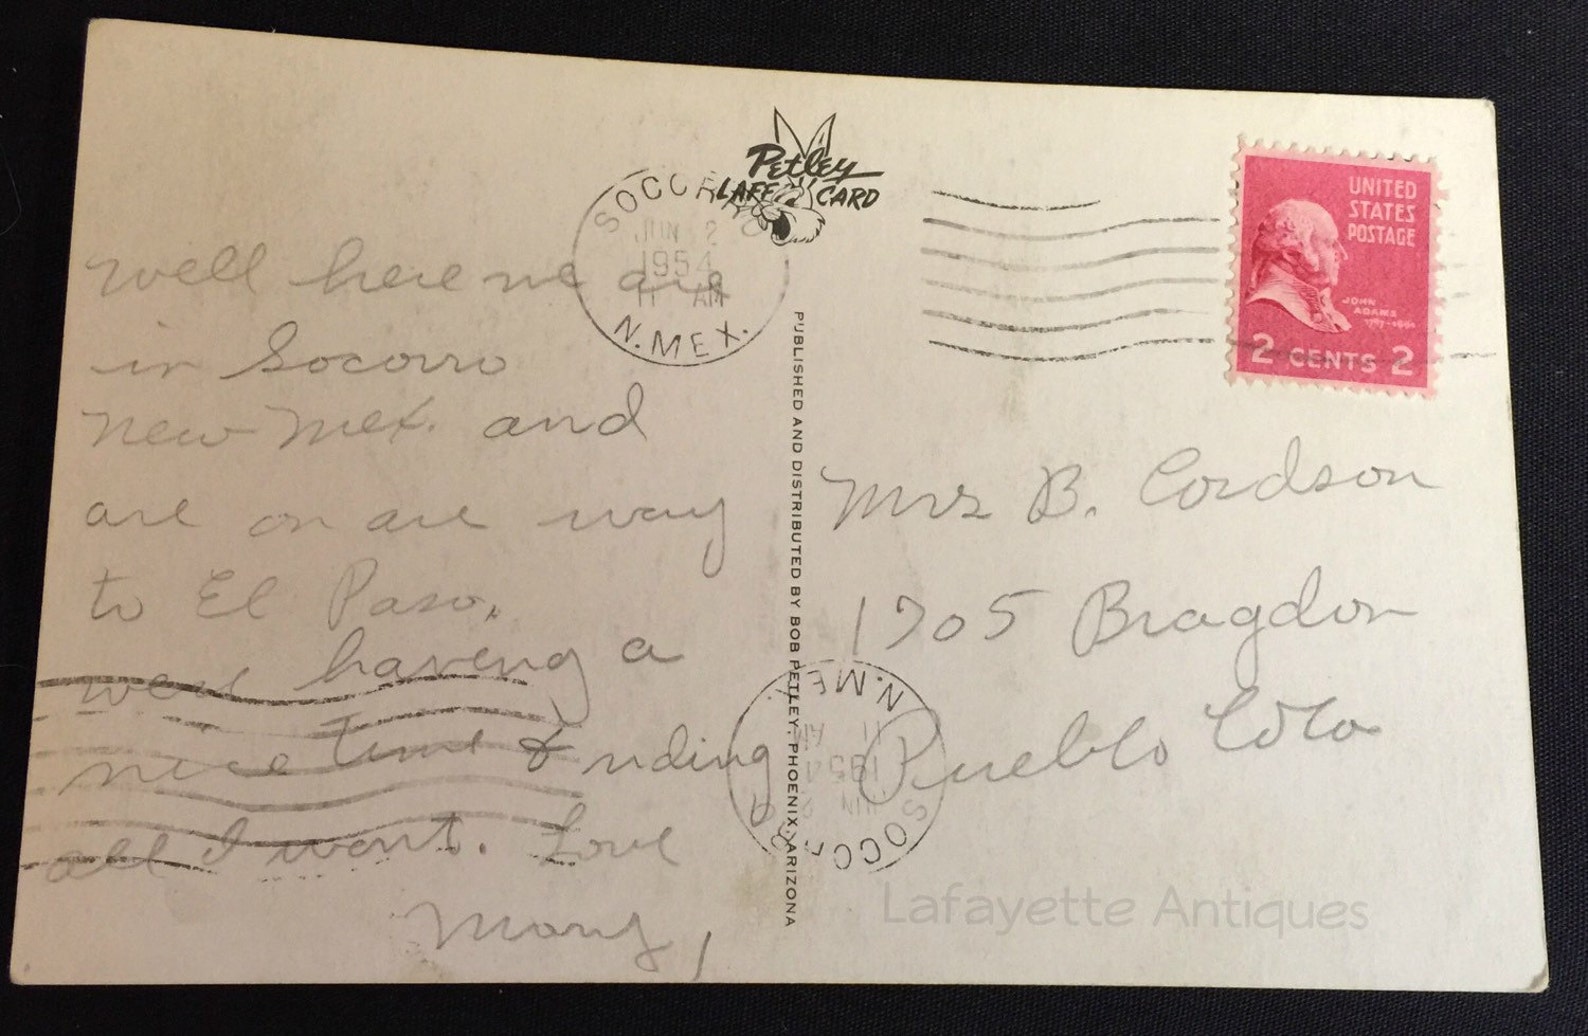 Well here we are
in Socorro
New Mex. and
are on are way
to El Paso.
were having a
nice time & riding
all I want. Love
Mary,
Petley
LAFF CARD
SOCORRO
JUN 2
1954
11 AM
N. MEX.
PUBLISHED AND DISTRIBUTED BY BOB PETLEY, PHOENIX, ARIZONA
UNITED
STATES
POSTAGE
JOHN
ADAMS
1797-1801
2 CENTS 2
Mrs B. Cordson
1705 Bragdon
Pueblo Colo
SOCORRO
JUN 2
1954
11 AM
N. MEX.
Lafayette Antiques